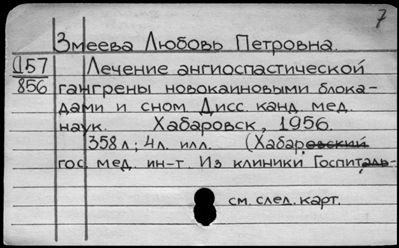 7
Змеева Любовь Петровна.
Д157
856
Лечение ангиоспастической
гангрены новокаиновыми блока-
дами и сном. Дисс. канд. мед.
наук. Хабаровск, 1956.
358 л; 4 л. илл. (Хабаровский
гос. мед. ин-т. Из клиники Госпиталь-
см. след. карт.